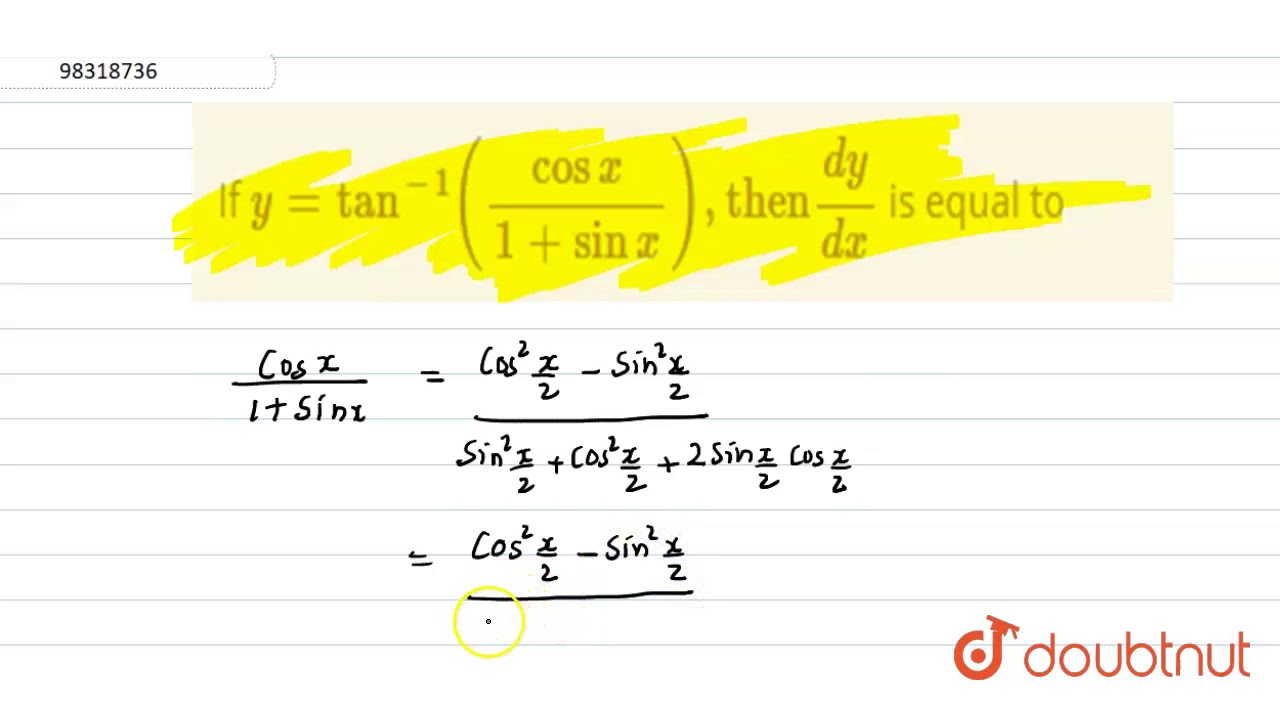 98318736
If y = tan⁻¹(cos x / (1 + sin x)), then dy/dx is equal to
Cos x / (1 + Sin x) = (Cos² x/2 − Sin² x/2) / (Sin² x/2 + Cos² x/2 + 2 Sin x/2 Cos x/2)
= Cos² x/2 − Sin² x/2
doubtnut